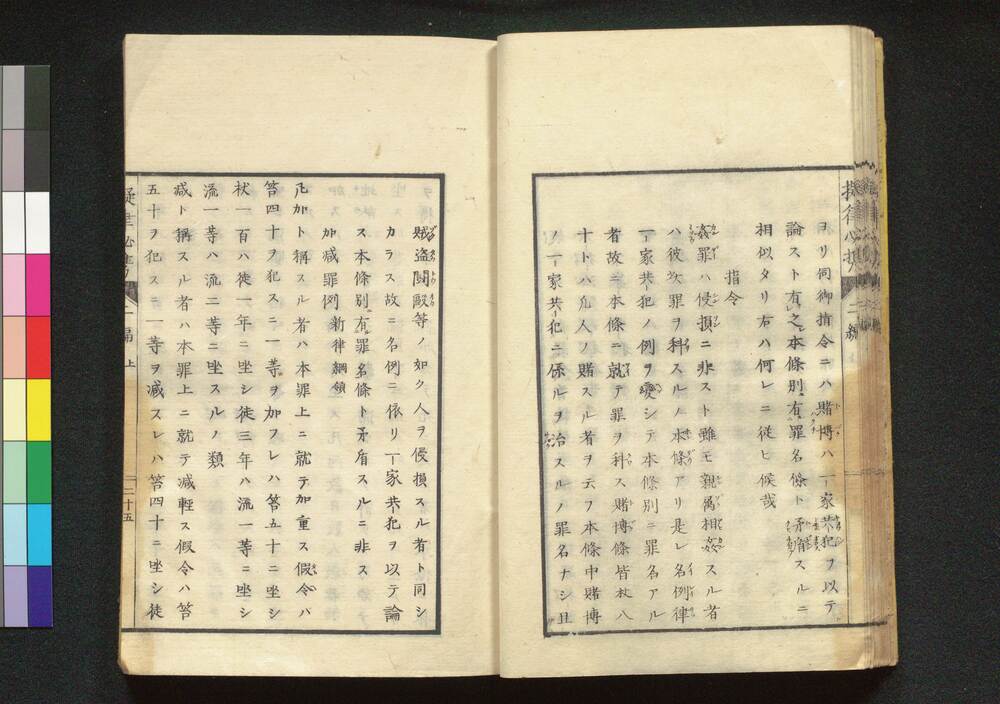 ヲリ伺御指令ニハ賭博ハ一家共犯ヲ以テ
論スト有之本條別有罪名條ト矛盾スルニ
相似タリ右ハ何レニ従ヒ候哉
指令
姦罪ハ侵損ニ非スト雖モ親属相姦スル者
ハ彼此罪ヲ科スルノ本條アリ是レ名例律
一家共犯ノ例ヲ變シテ本條別ニ罪名アル
者故ニ本條ニ就テ罪ヲ科ス賭博條皆杖八
十トハ凡人ノ賭スル者ヲ云フ本條中賭博
ノ一家共犯ニ係ルヲ治スルノ罪名ナシ且
賊盗闘毆等ノ如ク人ヲ侵損スル者ト同シ
カラス故ニ名例ニ依リ一家共犯ヲ以テ論
ス本條別有罪名條ト矛盾スルニ非ス
加減罪例 新律綱領
凡加ト稱スル者ハ本罪上ニ就テ加重ス假令ハ
笞四十ヲ犯スニ一等ヲ加フレハ笞五十ニ坐シ
杖一百ハ徒一年ニ坐シ徒三年ハ流一等ニ坐シ
流一等ハ流二等ニ坐スルノ類
減ト稱スル者ハ本罪上ニ就テ減輕ス假令ハ笞
五十ヲ犯スニ一等ヲ減スレハ笞四十ニ坐シ徒
二十五